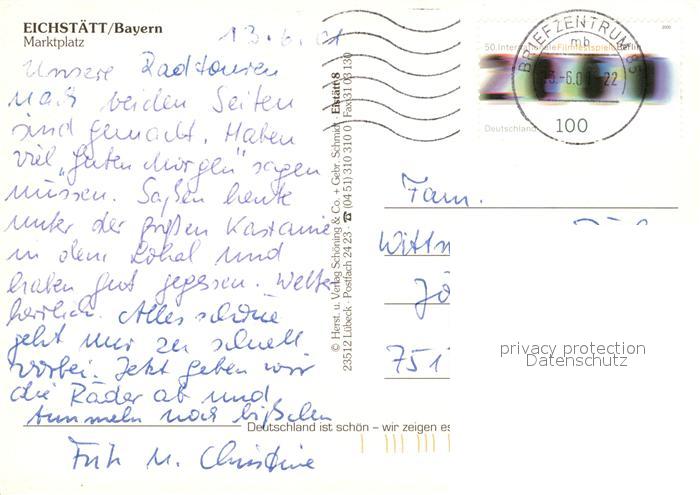 EICHSTÄTT/Bayern
Marktplatz
13.6.01
Unsere Radtouren
nach beiden Seiten
sind gemacht. Haben
viel „Guten Morgen" sagen
müssen. Saßen heute
unter der großen Kastanie
in dem Lokal und
haben gut gegessen. Wetter
herrlich. Alles schöne
geht nur zu schnell
vorbei. Jetzt geben wir
die Räder ab und
bummeln noch bißchen
Fritz u. Christine
© Herst. u. Verlag Schöning & Co. + Gebr. Schmidt · Eistätt 8
23512 Lübeck · Postfach 24 23 · ☎ (04 51) 310 310 0 · Fax 31 03 130
Deutschland ist schön – wir zeigen es
50. Internationale Filmfestspiele Berlin
2000
Deutschland
100
BRIEFZENTRUM 85
mb
13.-6.01-22
Fam.
Wittm
Jö
751
privacy protection
Datenschutz